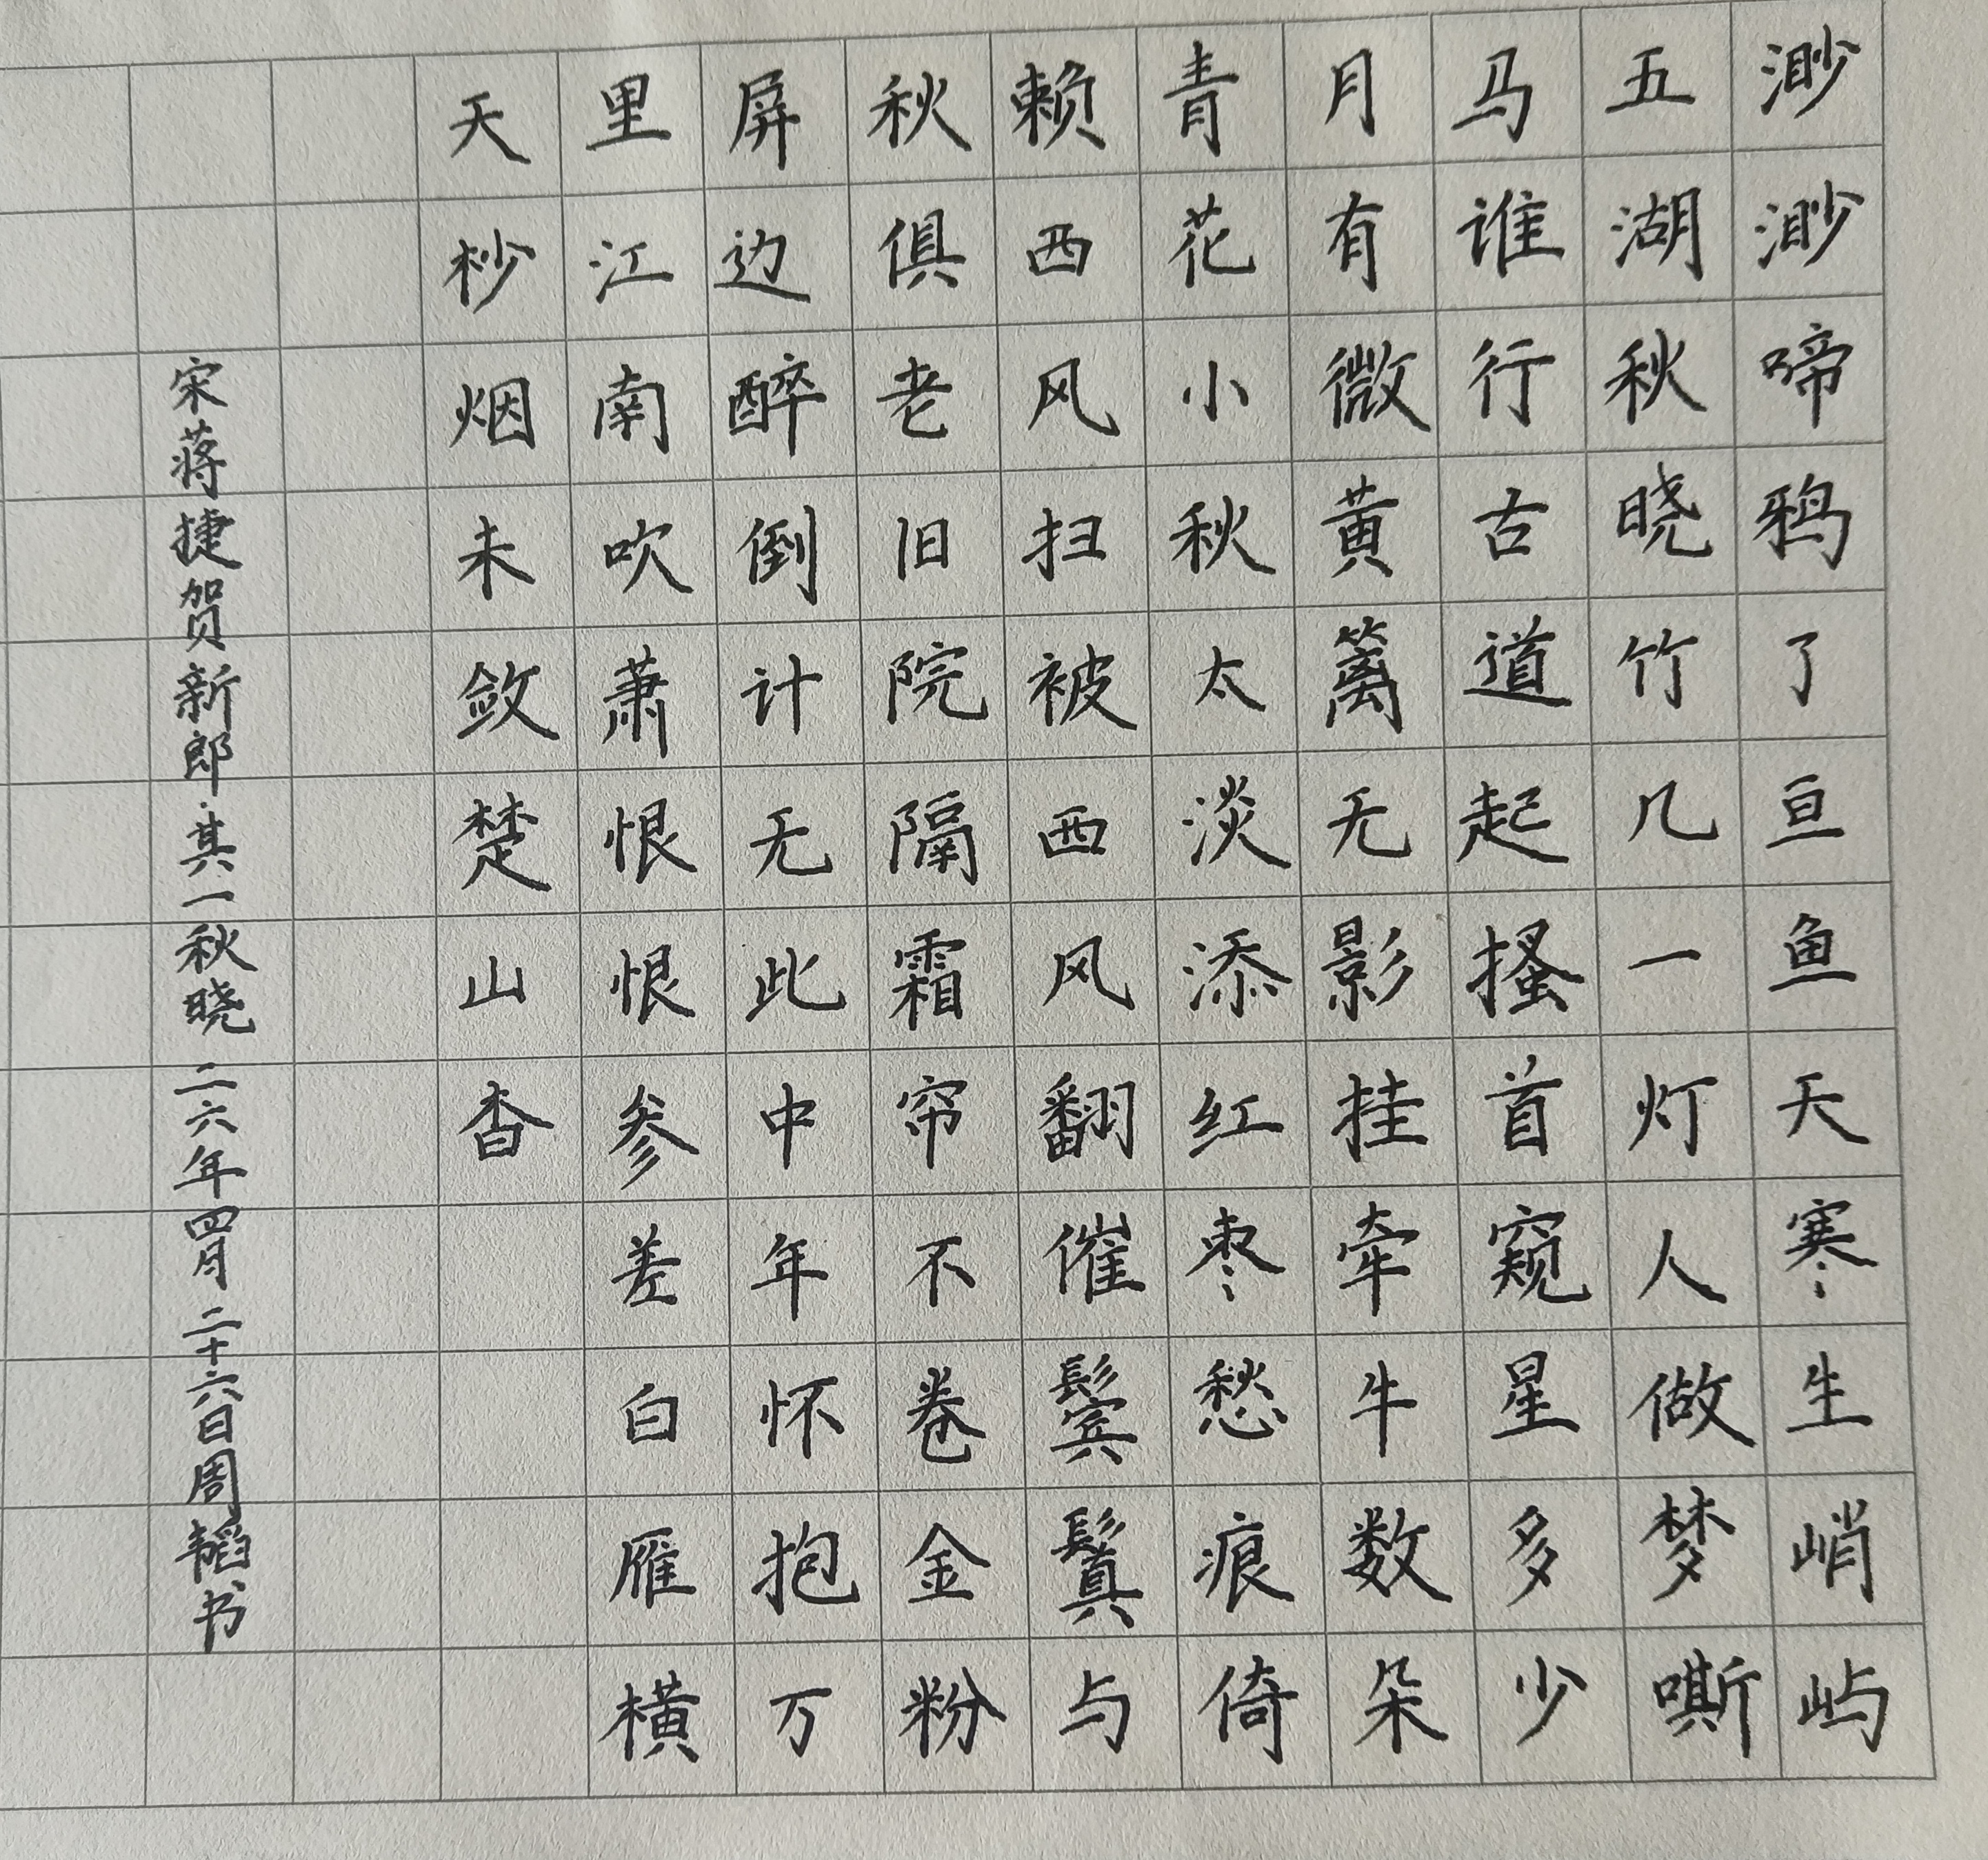 渺渺啼鸦了亘鱼天寒生峭屿
五湖秋晓竹几一灯人做梦嘶
马谁行古道起搔首窥星多少
月有微黄篱无影挂牵牛数朵
青花小秋太淡添红枣愁痕倚
赖西风扫被西风翻催鬓鬒与
秋俱老旧院隔霜帘不卷金粉
屏边醉倒计无此中年怀抱万
里江南吹萧恨恨参差白雁横
天杪烟未敛楚山杳
宋蒋捷贺新郎·其一秋晓 二六年四月二十六日周韬书